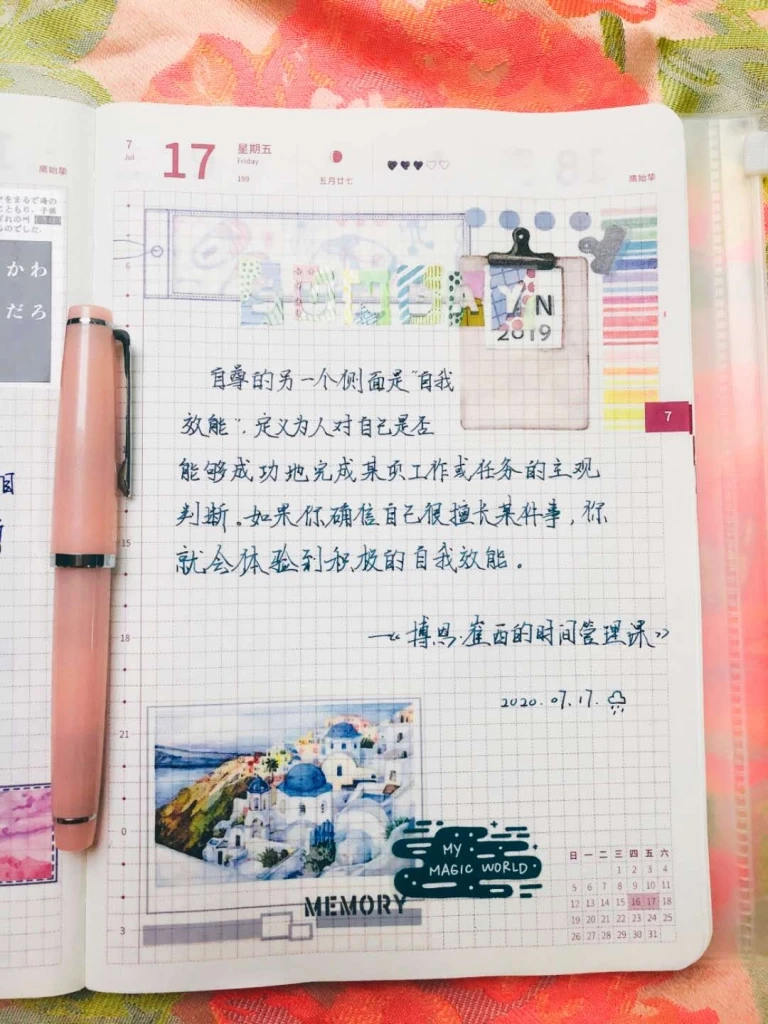 7
Jul
17
星期五
Friday
199
五月廿七
腐始挚
をまるで海の
こともり、子供
ものでした。
かわ
だろ
6
SUNDAY
2019
自尊的另一个侧面是“自我
效能”,定义为人对自己是否
能够成功地完成某项工作或任务的主观
判断。如果你确信自己很擅长某件事,你
就会体验到积极的自我效能。
—《博恩·崔西的时间管理课》
2020.07.17.
7
15
18
21
0
3
MY
MAGIC WORLD
MEMORY
日 一 二 三 四 五 六
1 2 3 4
5 6 7 8 9 10 11
12 13 14 15 16 17 18
19 20 21 22 23 24 25
26 27 28 29 30 31